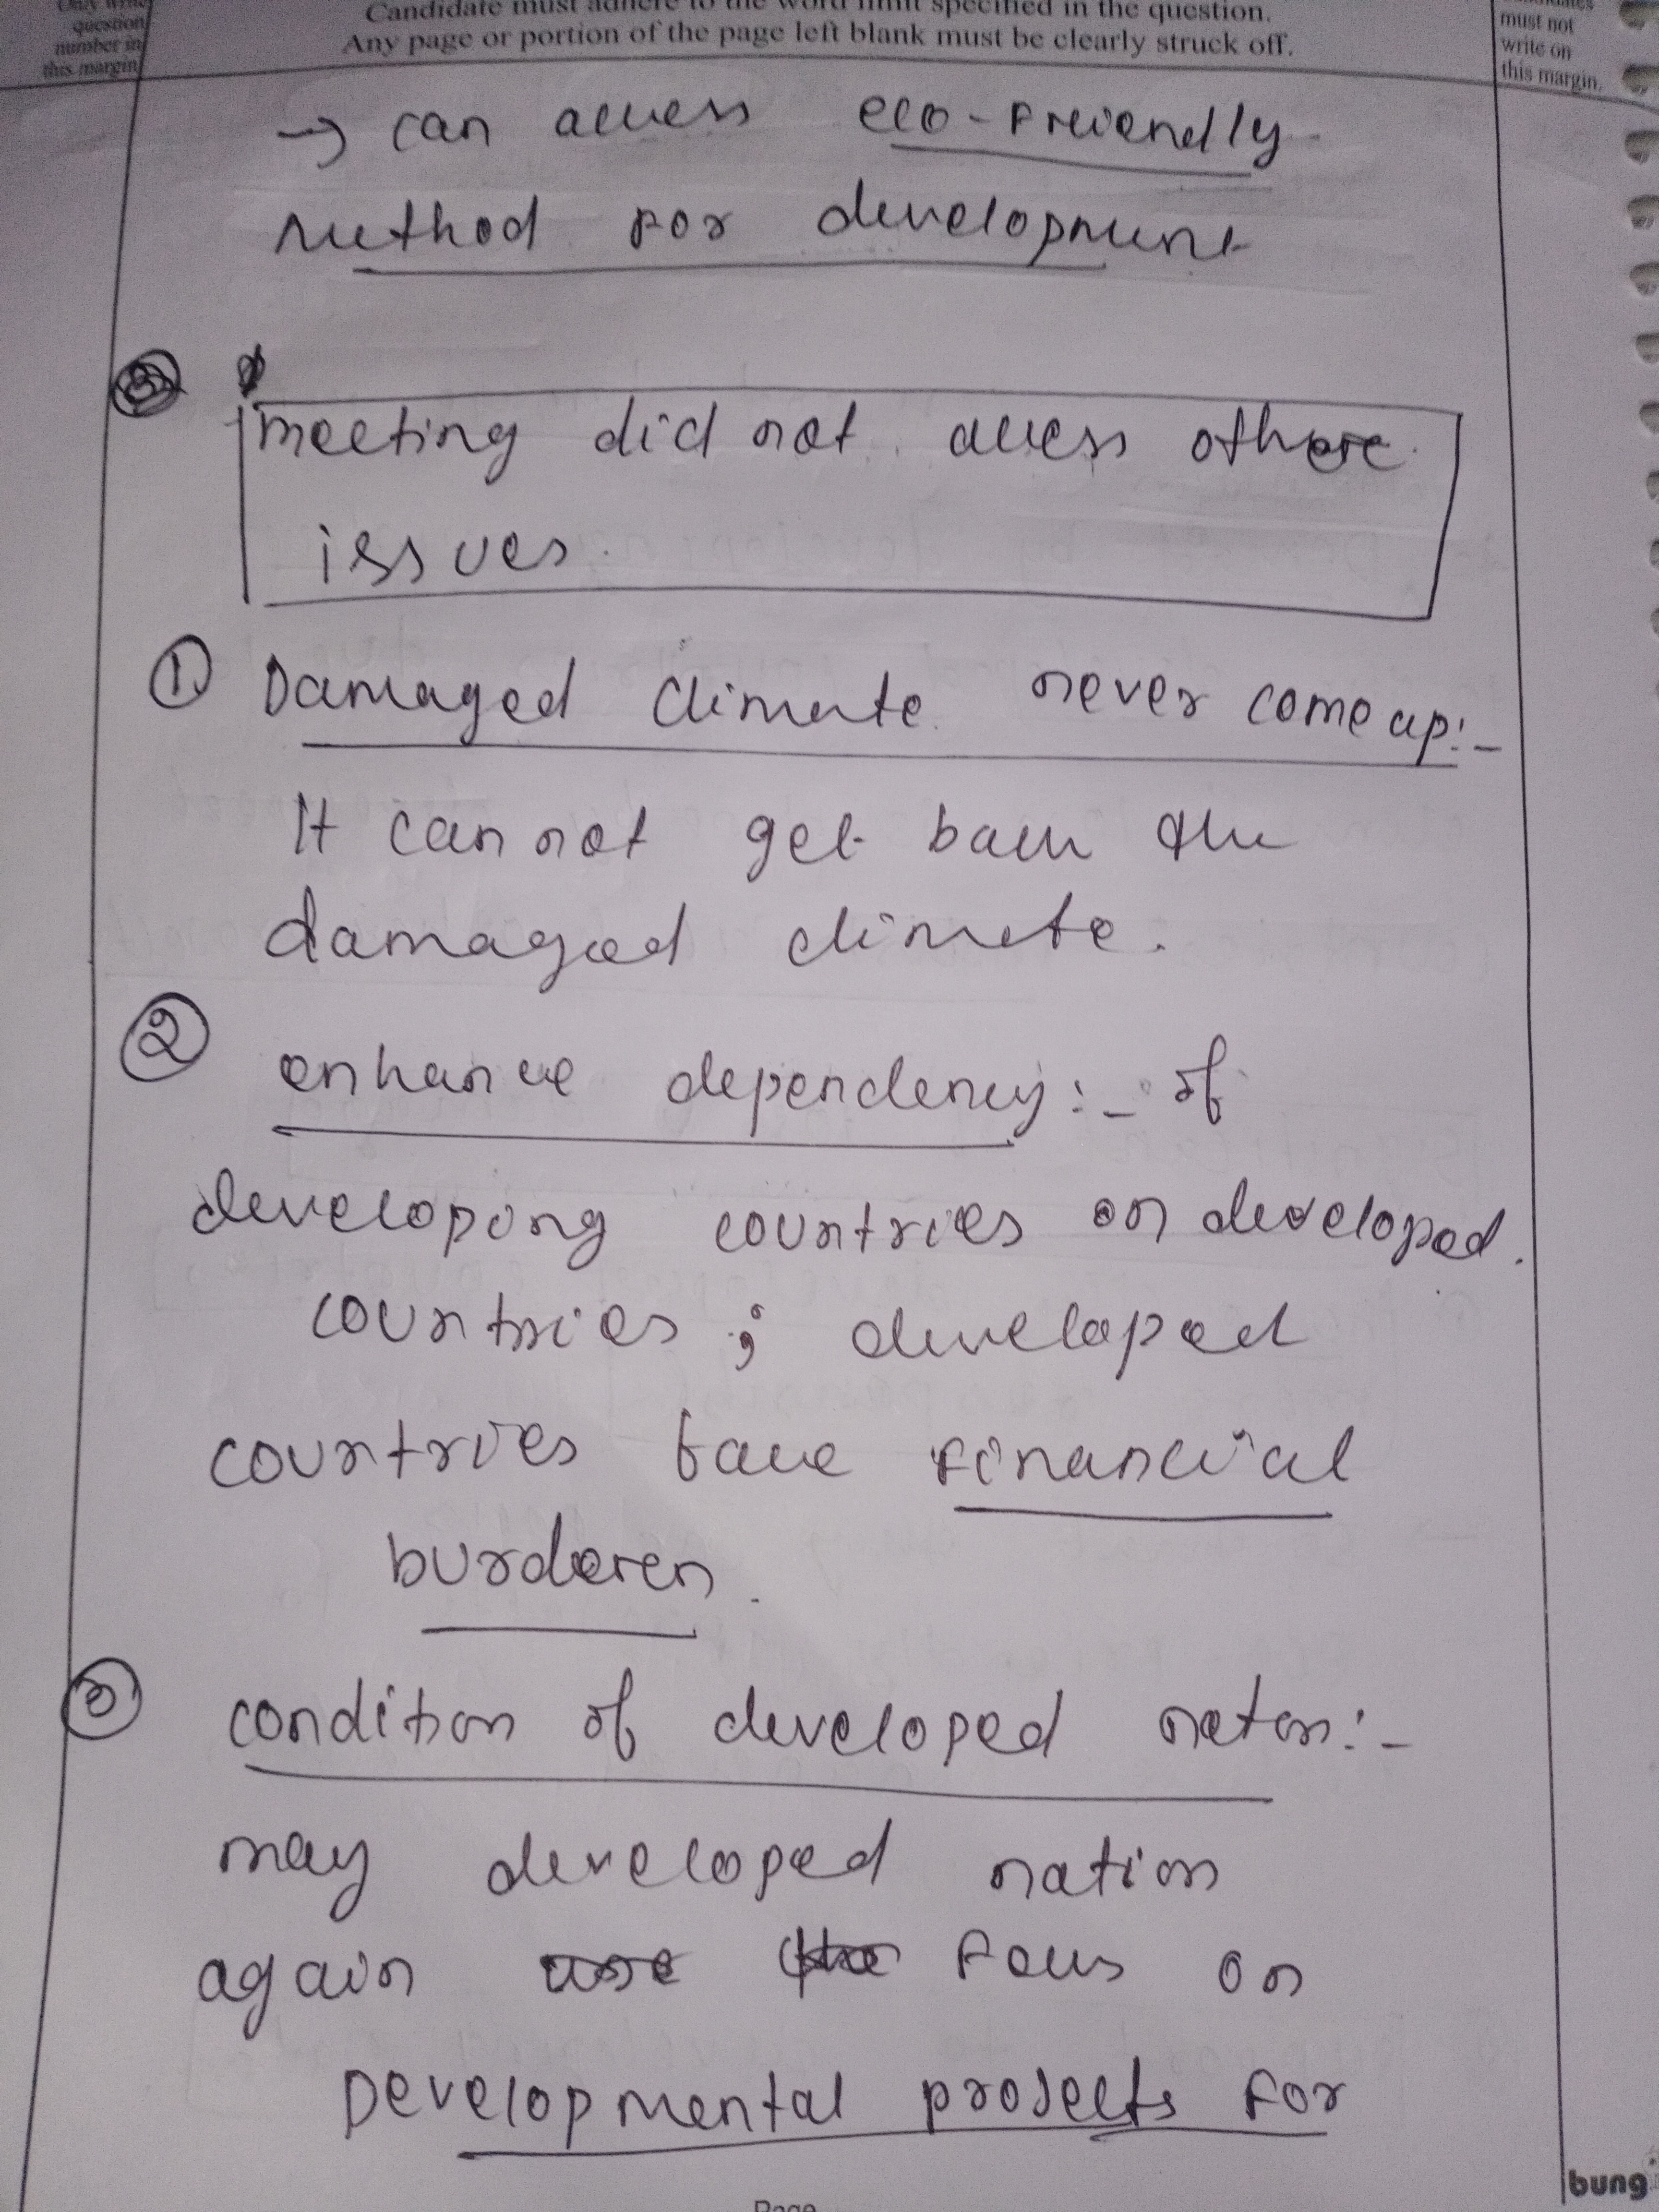 Only write
question
number in
this margin
Candidate must adhere to the word limit specified in the question.
Any page or portion of the page left blank must be clearly struck off.
must not
write on
this margin.
→ can access eco-Friendly
method for development
meeting did not access other
issues.
① Damaged climate never come up:-
It can not get back the
damaged climate.
② enhance dependency:- of
developing countries on developed
countries ; developed
countries face financial
burderen.
③ condition of developed naton:-
may developed nation
again focus on
Developmental projects for
Page
bung